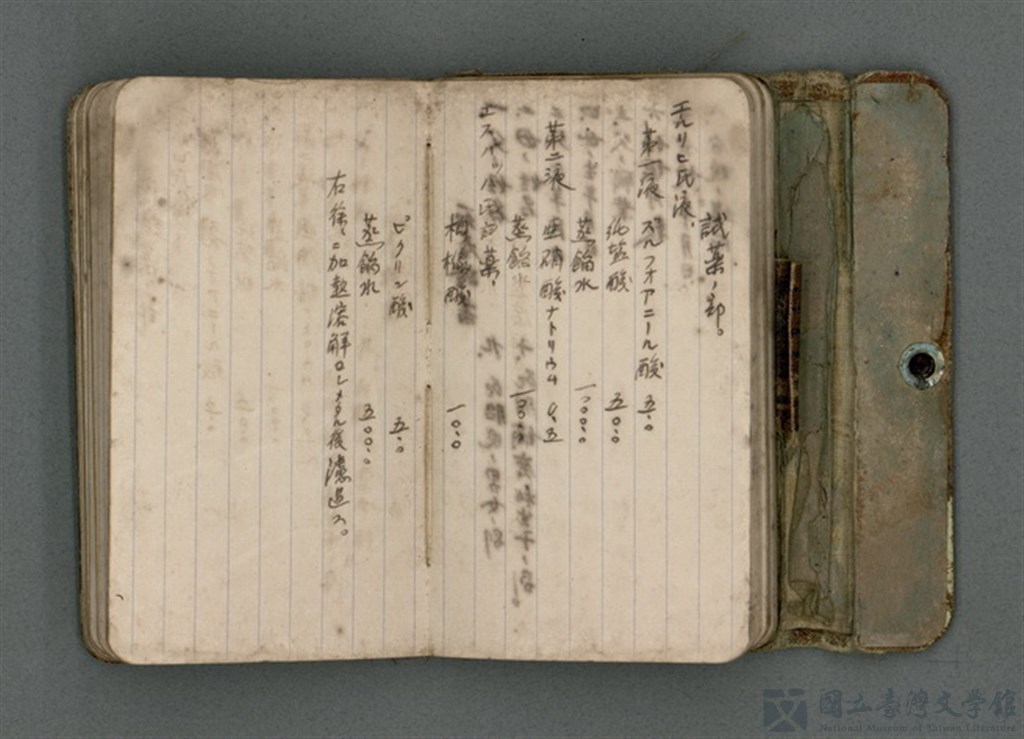 試薬ノ部。
エールリヒ氏液、
第一液 スルフオアニール酸 五・〇
純塩酸 五〇・〇
蒸餾水 一〇〇〇・〇
第二液 亜硝酸ナトリウム 〇・五
蒸餾水 一〇〇・〇
エスバッハ氏試薬、
枸櫞酸 一〇・〇
ピクリン酸 五・〇
蒸餾水 五〇〇・〇
右徐々ニ加熱溶解ロシメタル後濾過ス。
國立臺灣文學館
National Museum of Taiwan Literature